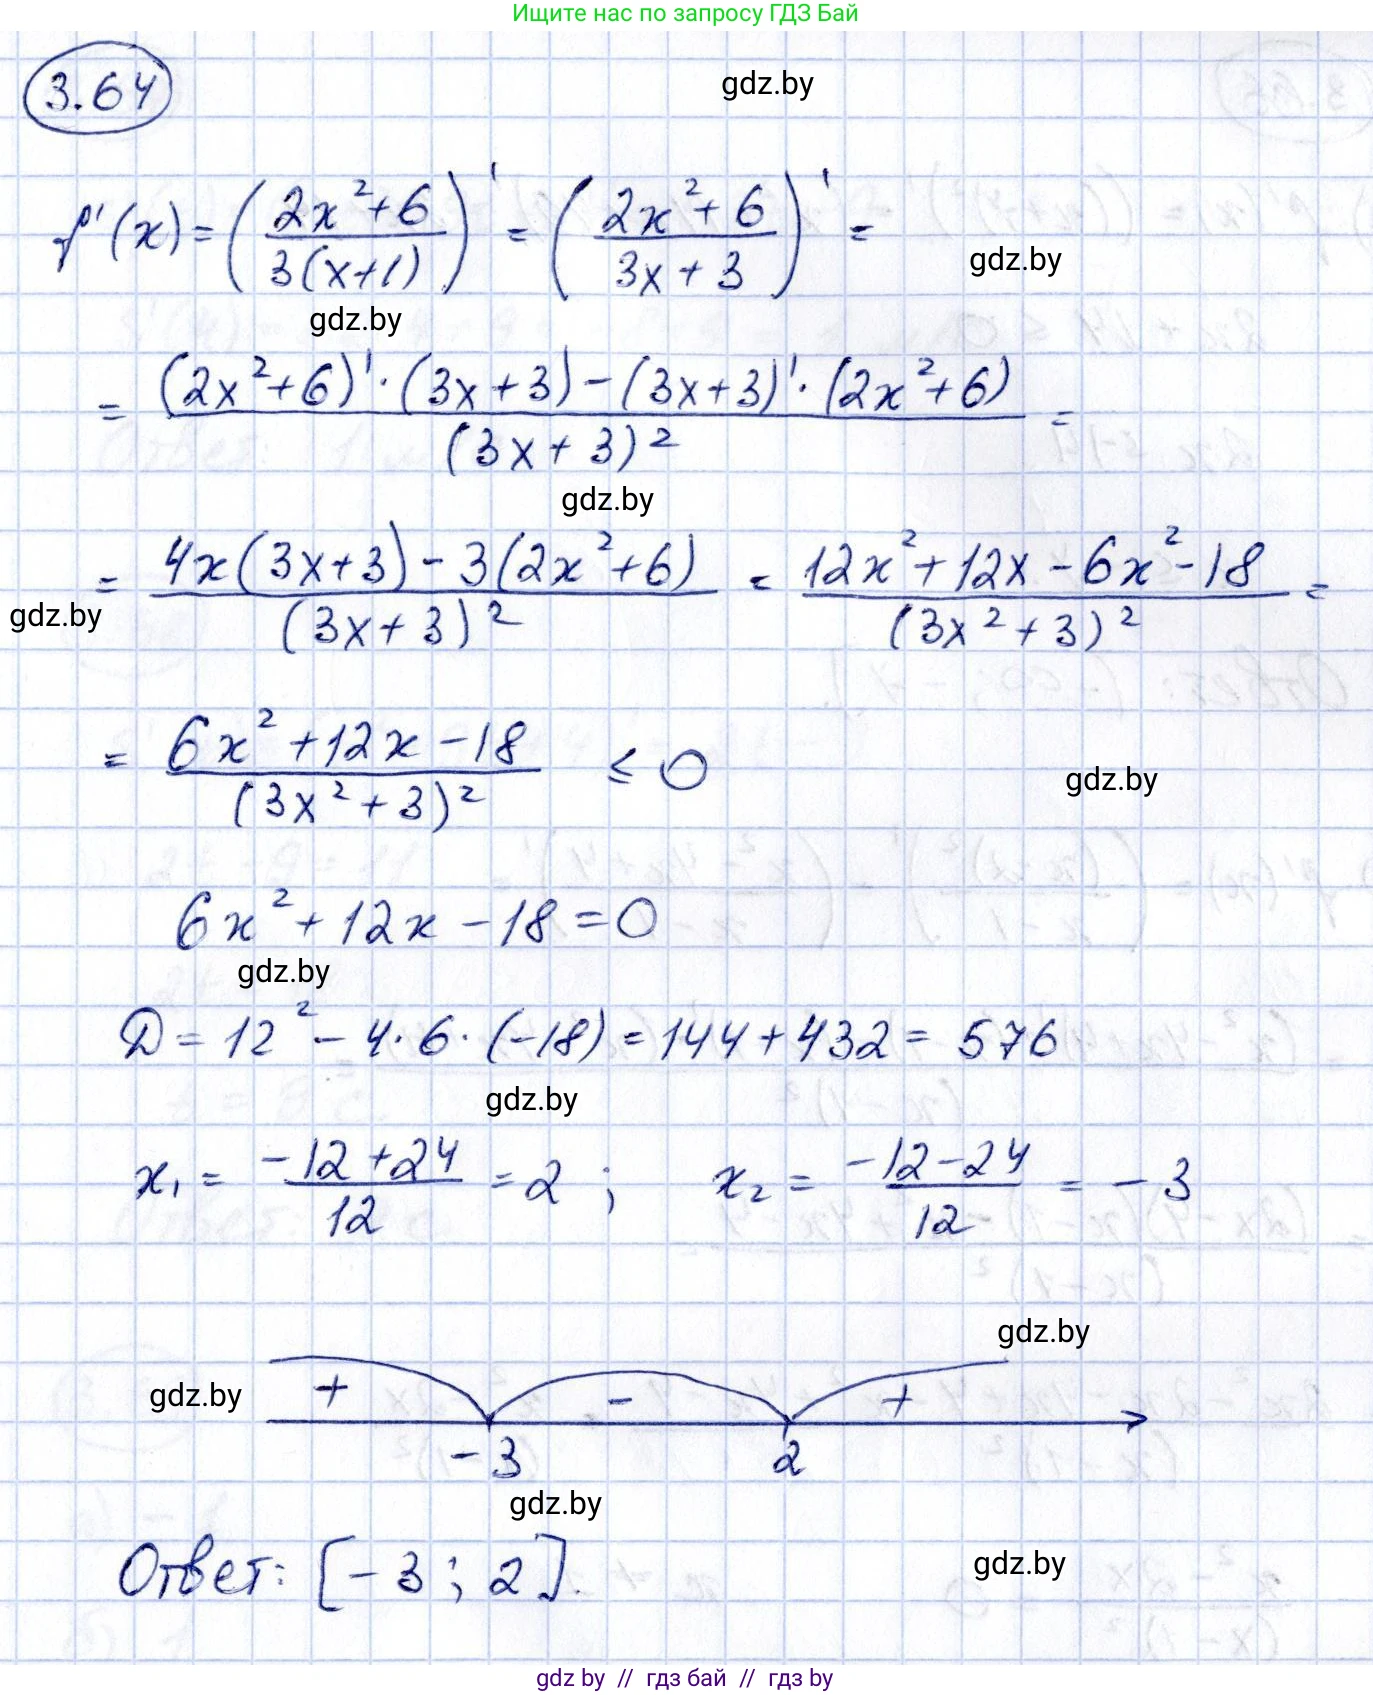 Ищите нас по запросу ГДЗ Бай
3.64
gdz.by
f'(x) = ((2x²+6)/(3(x+1)))' = ((2x²+6)/(3x+3))' =
gdz.by
gdz.by
= ((2x²+6)'·(3x+3)-(3x+3)'·(2x²+6))/(3x+3)² =
gdz.by
= (4x(3x+3)-3(2x²+6))/(3x+3)² = (12x²+12x-6x²-18)/(3x²+3)² =
gdz.by
= (6x²+12x-18)/(3x²+3)² ≤ 0
gdz.by
6x²+12x-18=0
gdz.by
D = 12² - 4·6·(-18) = 144+432 = 576
gdz.by
x₁ = (-12+24)/12 = 2; x₂ = (-12-24)/12 = -3
gdz.by
gdz.by
+ - +
-3 2
gdz.by
Ответ: [-3; 2].
gdz.by
gdz by // гдз бай // гдз by